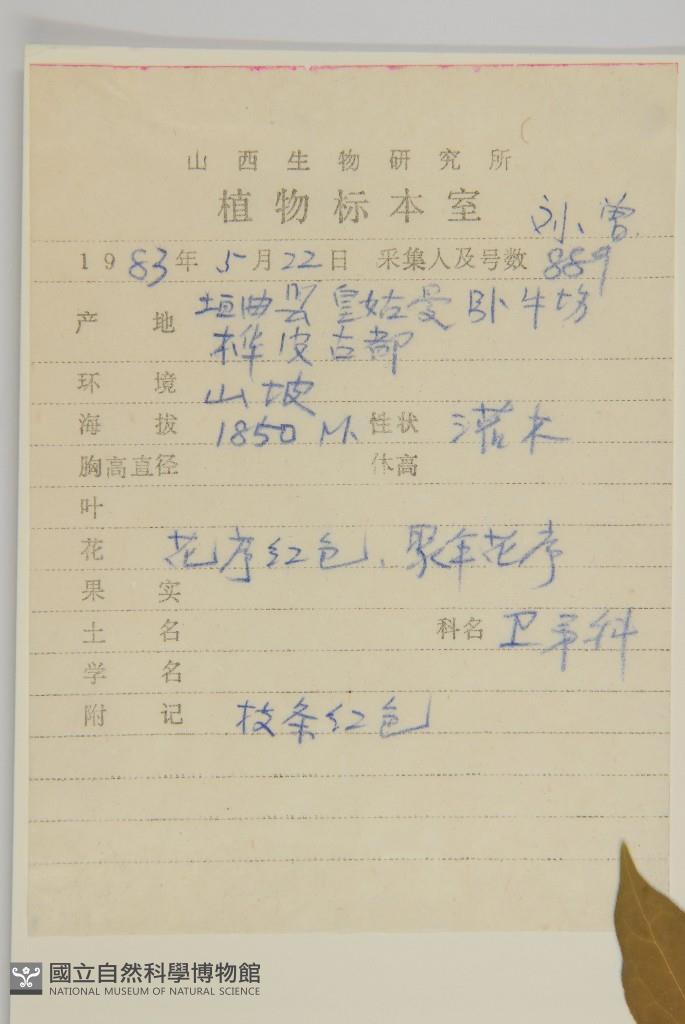 山西生物研究所
植物标本室
刘 曾
1983年5月22日 采集人及号数 889
产地 垣曲县皇姑曼卧牛场
桦皮古都
环境 山坡
海拔 1850 M. 性状 灌木
胸高直径 体高
叶
花 花序红色、聚伞花序
果实
土名 科名 卫矛科
学名
附记 枝条红色
國立自然科學博物館
NATIONAL MUSEUM OF NATURAL SCIENCE